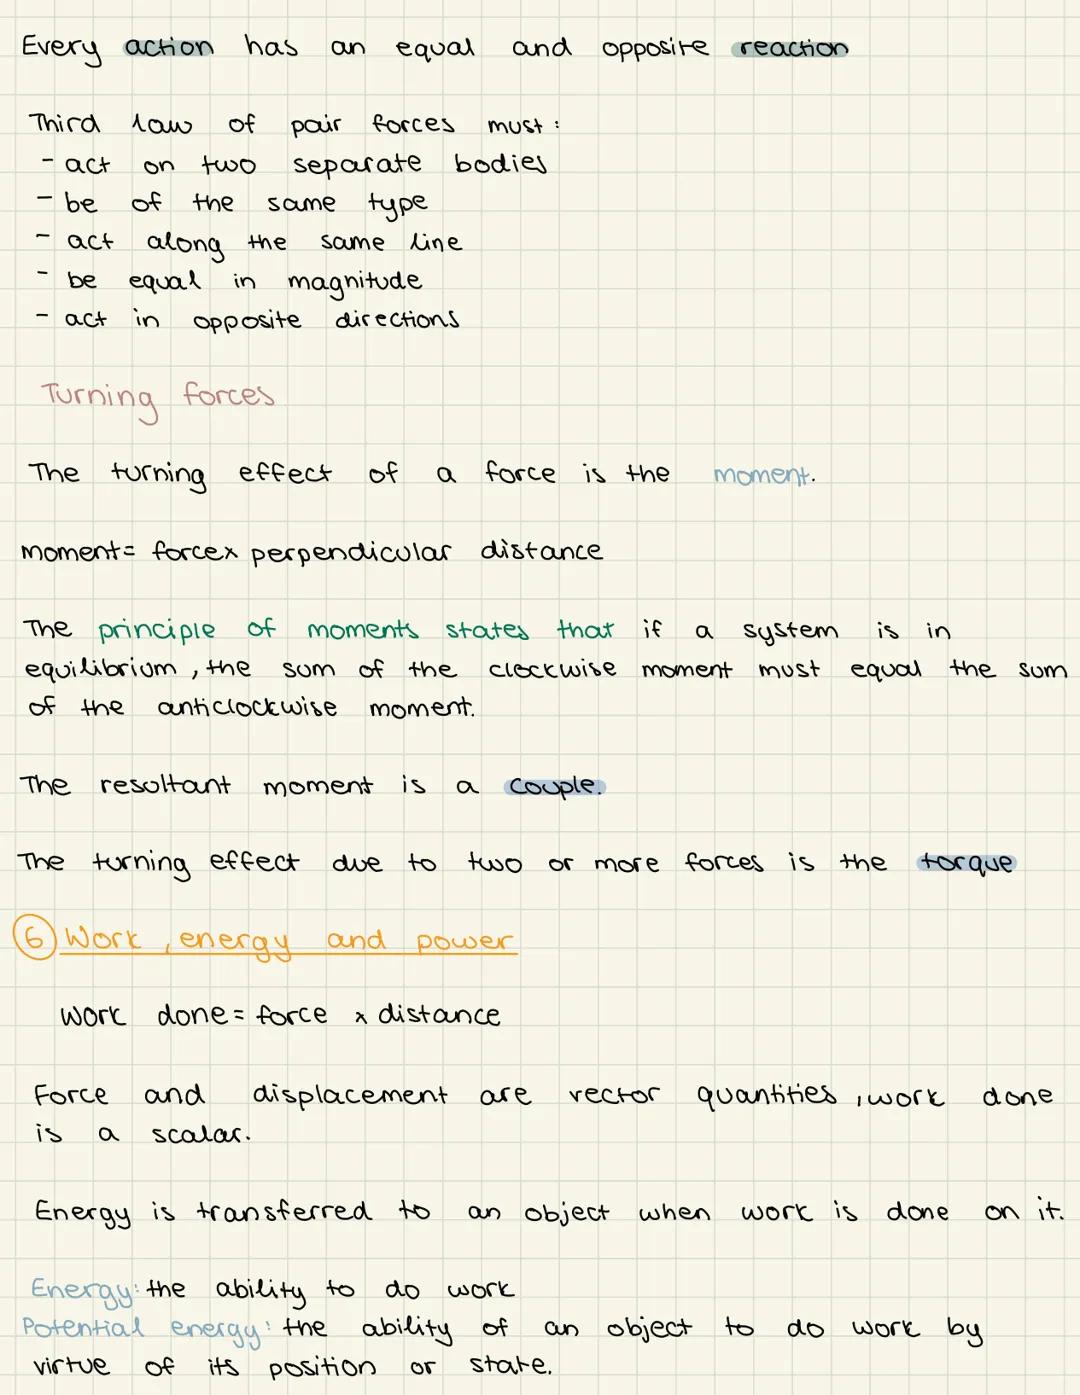 Every action has an equal and opposite reaction
Third law of pair forces must:
- act on two separate bodies
- be of the same type
- act along the same line
- be equal in magnitude
- act in opposite directions
Turning forces
The turning effect of a force is the moment.
moment= force x perpendicular distance
The principle of moments states that if a system is in
equilibrium, the sum of the clockwise moment must equal the sum
of the anticlockwise moment.
The resultant moment is a couple.
The turning effect due to two or more forces is the torque
6 Work, energy and power
work done = force x distance
Force and displacement are vector quantities, work done
is a scalar.
Energy is transferred to an object when work is done on it.
Energy: the ability to do work
Potential energy: the ability of an object to do work by
virtue of its position or state.